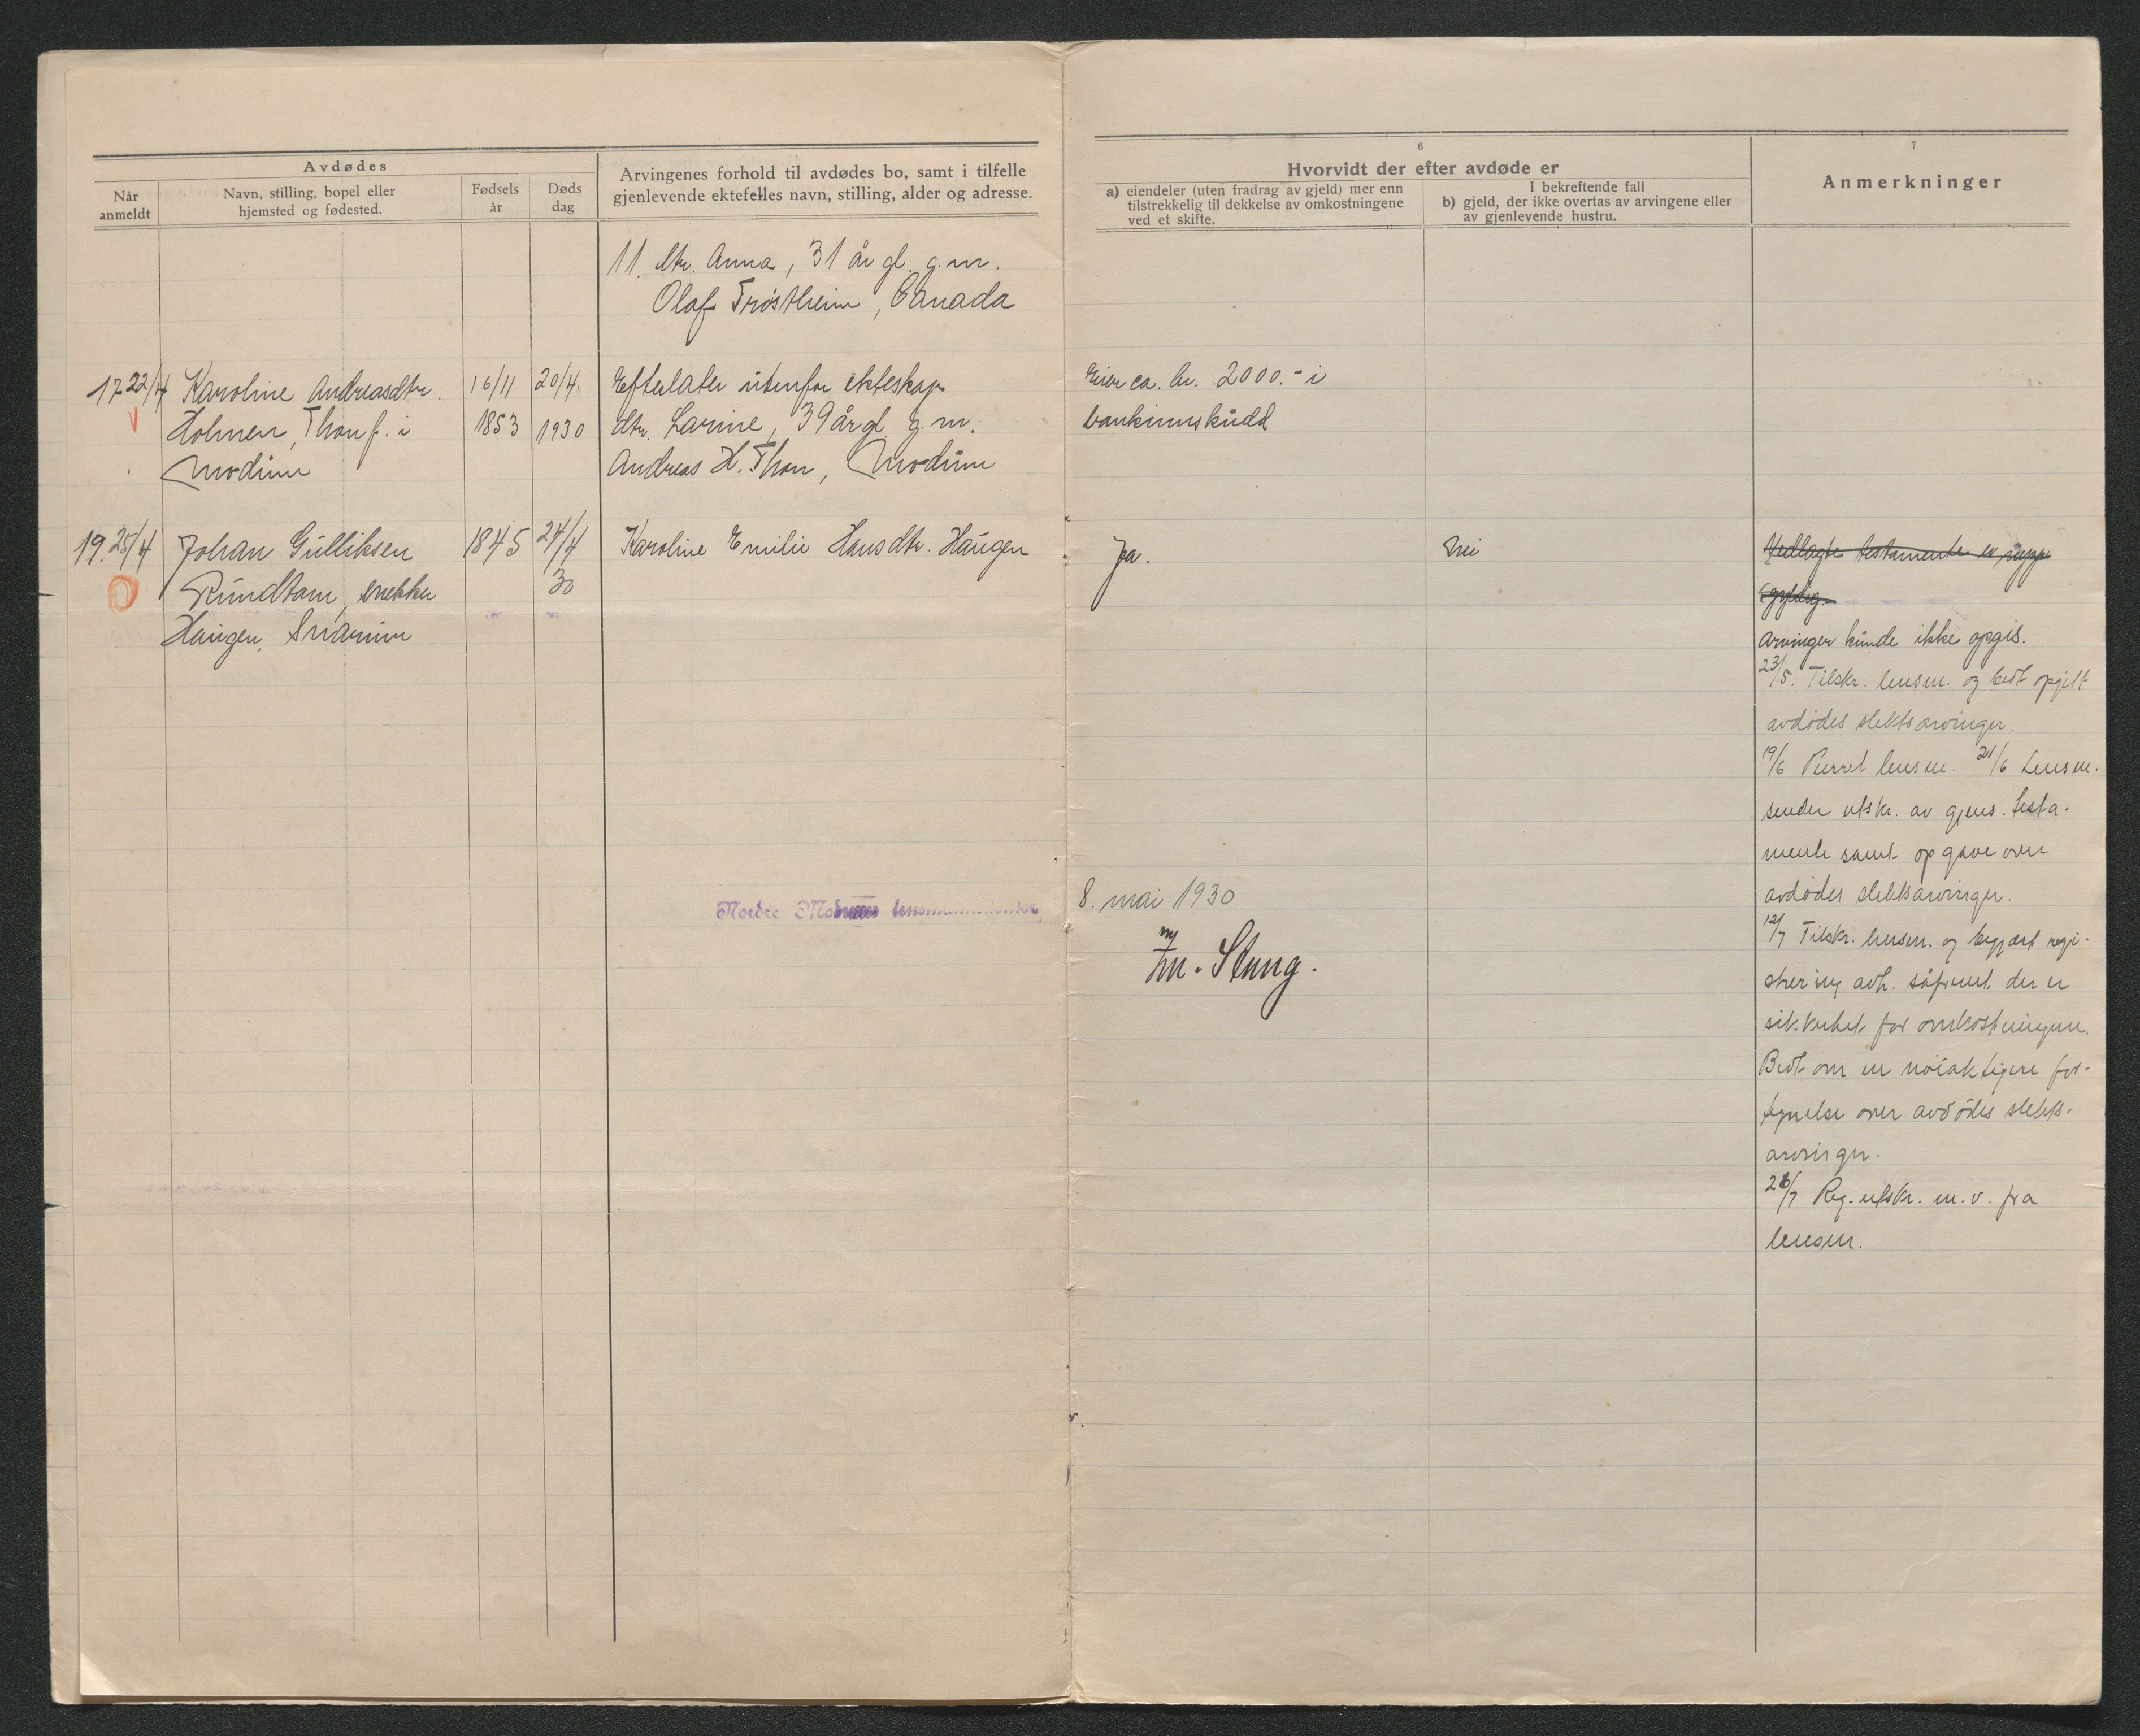 Avdødes
Når
anmeldt
Navn, stilling, bopel eller
hjemsted og fødested.
Fødsels
år
Døds
dag
Arvingenes forhold til avdødes bo, samt i tilfelle
gjenlevende ektefelles navn, stilling, alder og adresse.
11. dtr. Anna, 31 år gl. g.m.
Olaf Trøstheim, Canada
17 22/4 Karoline Andreasdtr. 16/11 20/4 Efterlater utenfor ekteskap
V Holmen, Thon f. i 1853 1930 dtr. Larine, 39 år gl g.m.
Modum Andreas H. Thon, Modum
19. 25/4 Johan Gulliksen 1845 24/4 Karoline Emilie Hansdtr. Haugen
O Rundtom, snekker 30
Haugen, Snarum
Nordre Modums lensmannskontor,
6
Hvorvidt der efter avdøde er
a) eiendeler (uten fradrag av gjeld) mer enn
tilstrekkelig til dekkelse av omkostningene
ved et skifte.
I bekreftende fall
b) gjeld, der ikke overtas av arvingene eller
av gjenlevende hustru.
7
Anmerkninger
Eier ca. kr. 2000.- i
bankinnskudd
Ja.
Nei
Vedlagte testamente er
Arvinger kunde ikke opgis.
23/5. Tilskr. lensm. og bedt opgitt
avdødes slektsarvinger.
19/6 Purret lensm. 21/6 Lensm.
sender utskr. av gjens. testa-
mente samt opgave over
avdødes slektsarvinger.
12/7 Tilskr. lensm. og begjært regi-
strering avh. såfremt der er
sikkerhet for omkostningene.
Bedt om en nøiaktigere for-
tegnelse over avdødes slekts-
arvinger.
26/7 Reg.utskr. m.v. fra
lensm.
8. mai 1930
M. Stung.